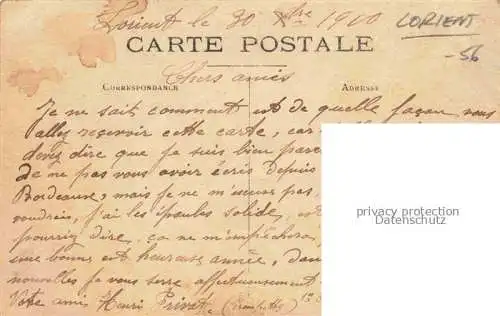 Lorient le 30 Xbre 1910
LORIENT
CARTE POSTALE
-56
Chers amis
CORRESPONDANCE
ADRESSE
Je ne sait comment est de quelle façon vous
allez recevoir cette carte, car
devez dire que je suis bien
de ne pas vous avoir écris depuis
Bordeaux, mais je ne m'excuse pas
voudrais, j'ai les épaules solide,
pourriez dire, ça ne m'empêchera
une bonne est heureuse année, dans
nouvelles je vous serre affectueusement
Votre ami Henri Privat
privacy protection
Datenschutz